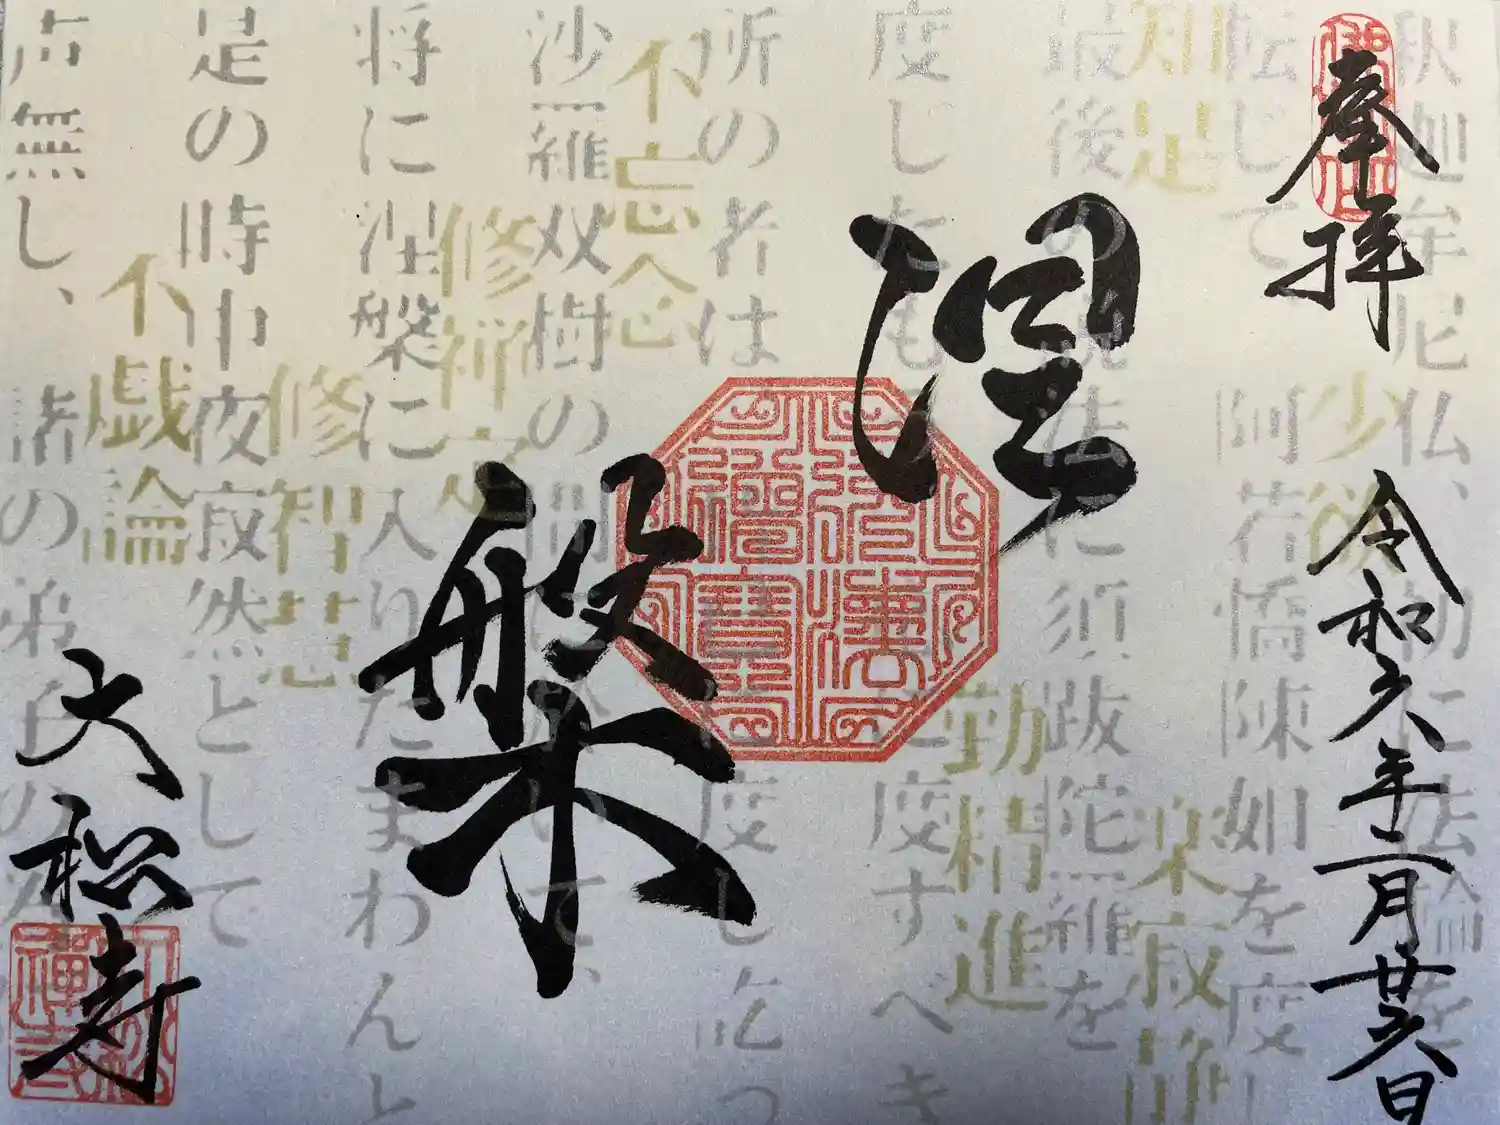 奉拝
令和六年二月廿六日
涅槃
大松寺
釈迦牟尼仏、初に法輪を
転じて、阿若憍陳如を度し
最後の説法に須跋陀羅を
度したもう
に度すべき
所の者は、
に度し訖っ
沙羅双樹の間に於いて、
将に涅槃に入りたまわんと
是の時中夜寂然として
声無し、諸の弟子の
少欲
知足
楽寂静
勤精進
不忘念
修禅定
修智慧
不戯論